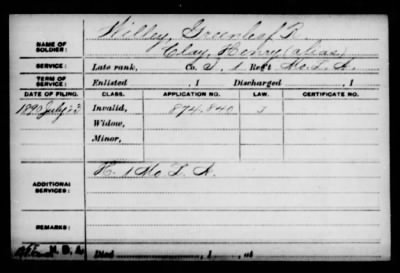 Willey, Greenleaf D.
NAME OF SOLDIER: Clay, Henry (alias)
SERVICE: Late rank, Co. I, 1 Reg't Mo. L. A.
TERM OF SERVICE: Enlisted , 1 Discharged , 1
DATE OF FILING. CLASS. APPLICATION NO. LAW. CERTIFICATE NO.
1890 July 23 Invalid, 874.840 J
Widow,
Minor,
ADDITIONAL SERVICES: K. 1 Mo L. A.
REMARKS:
Died , 1 , at